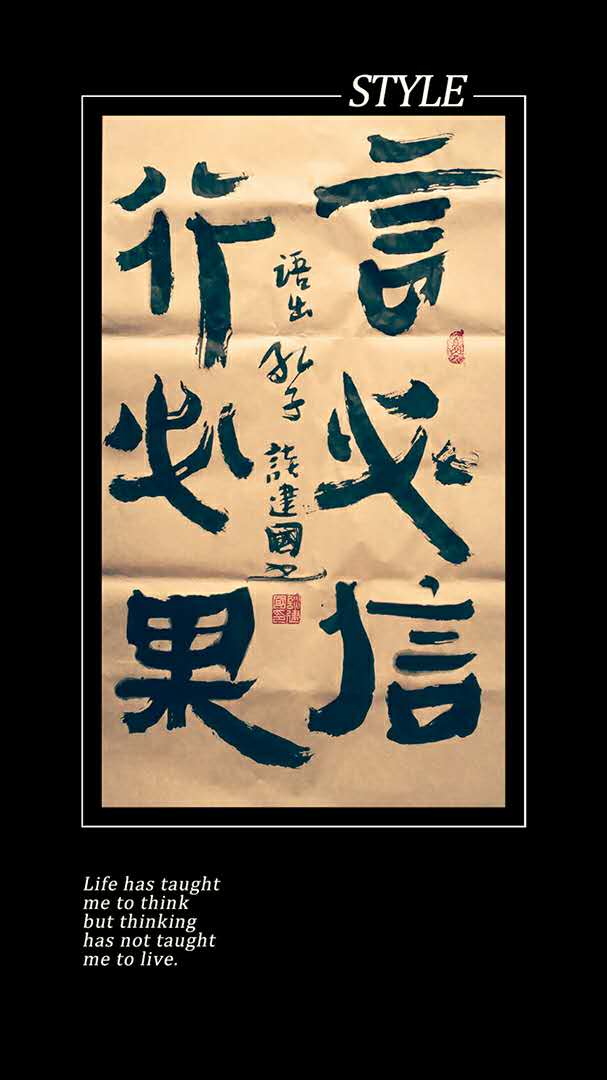 STYLE
言必信
行必果
语出孔子 建國
Life has taught
me to think
but thinking
has not taught
me to live.